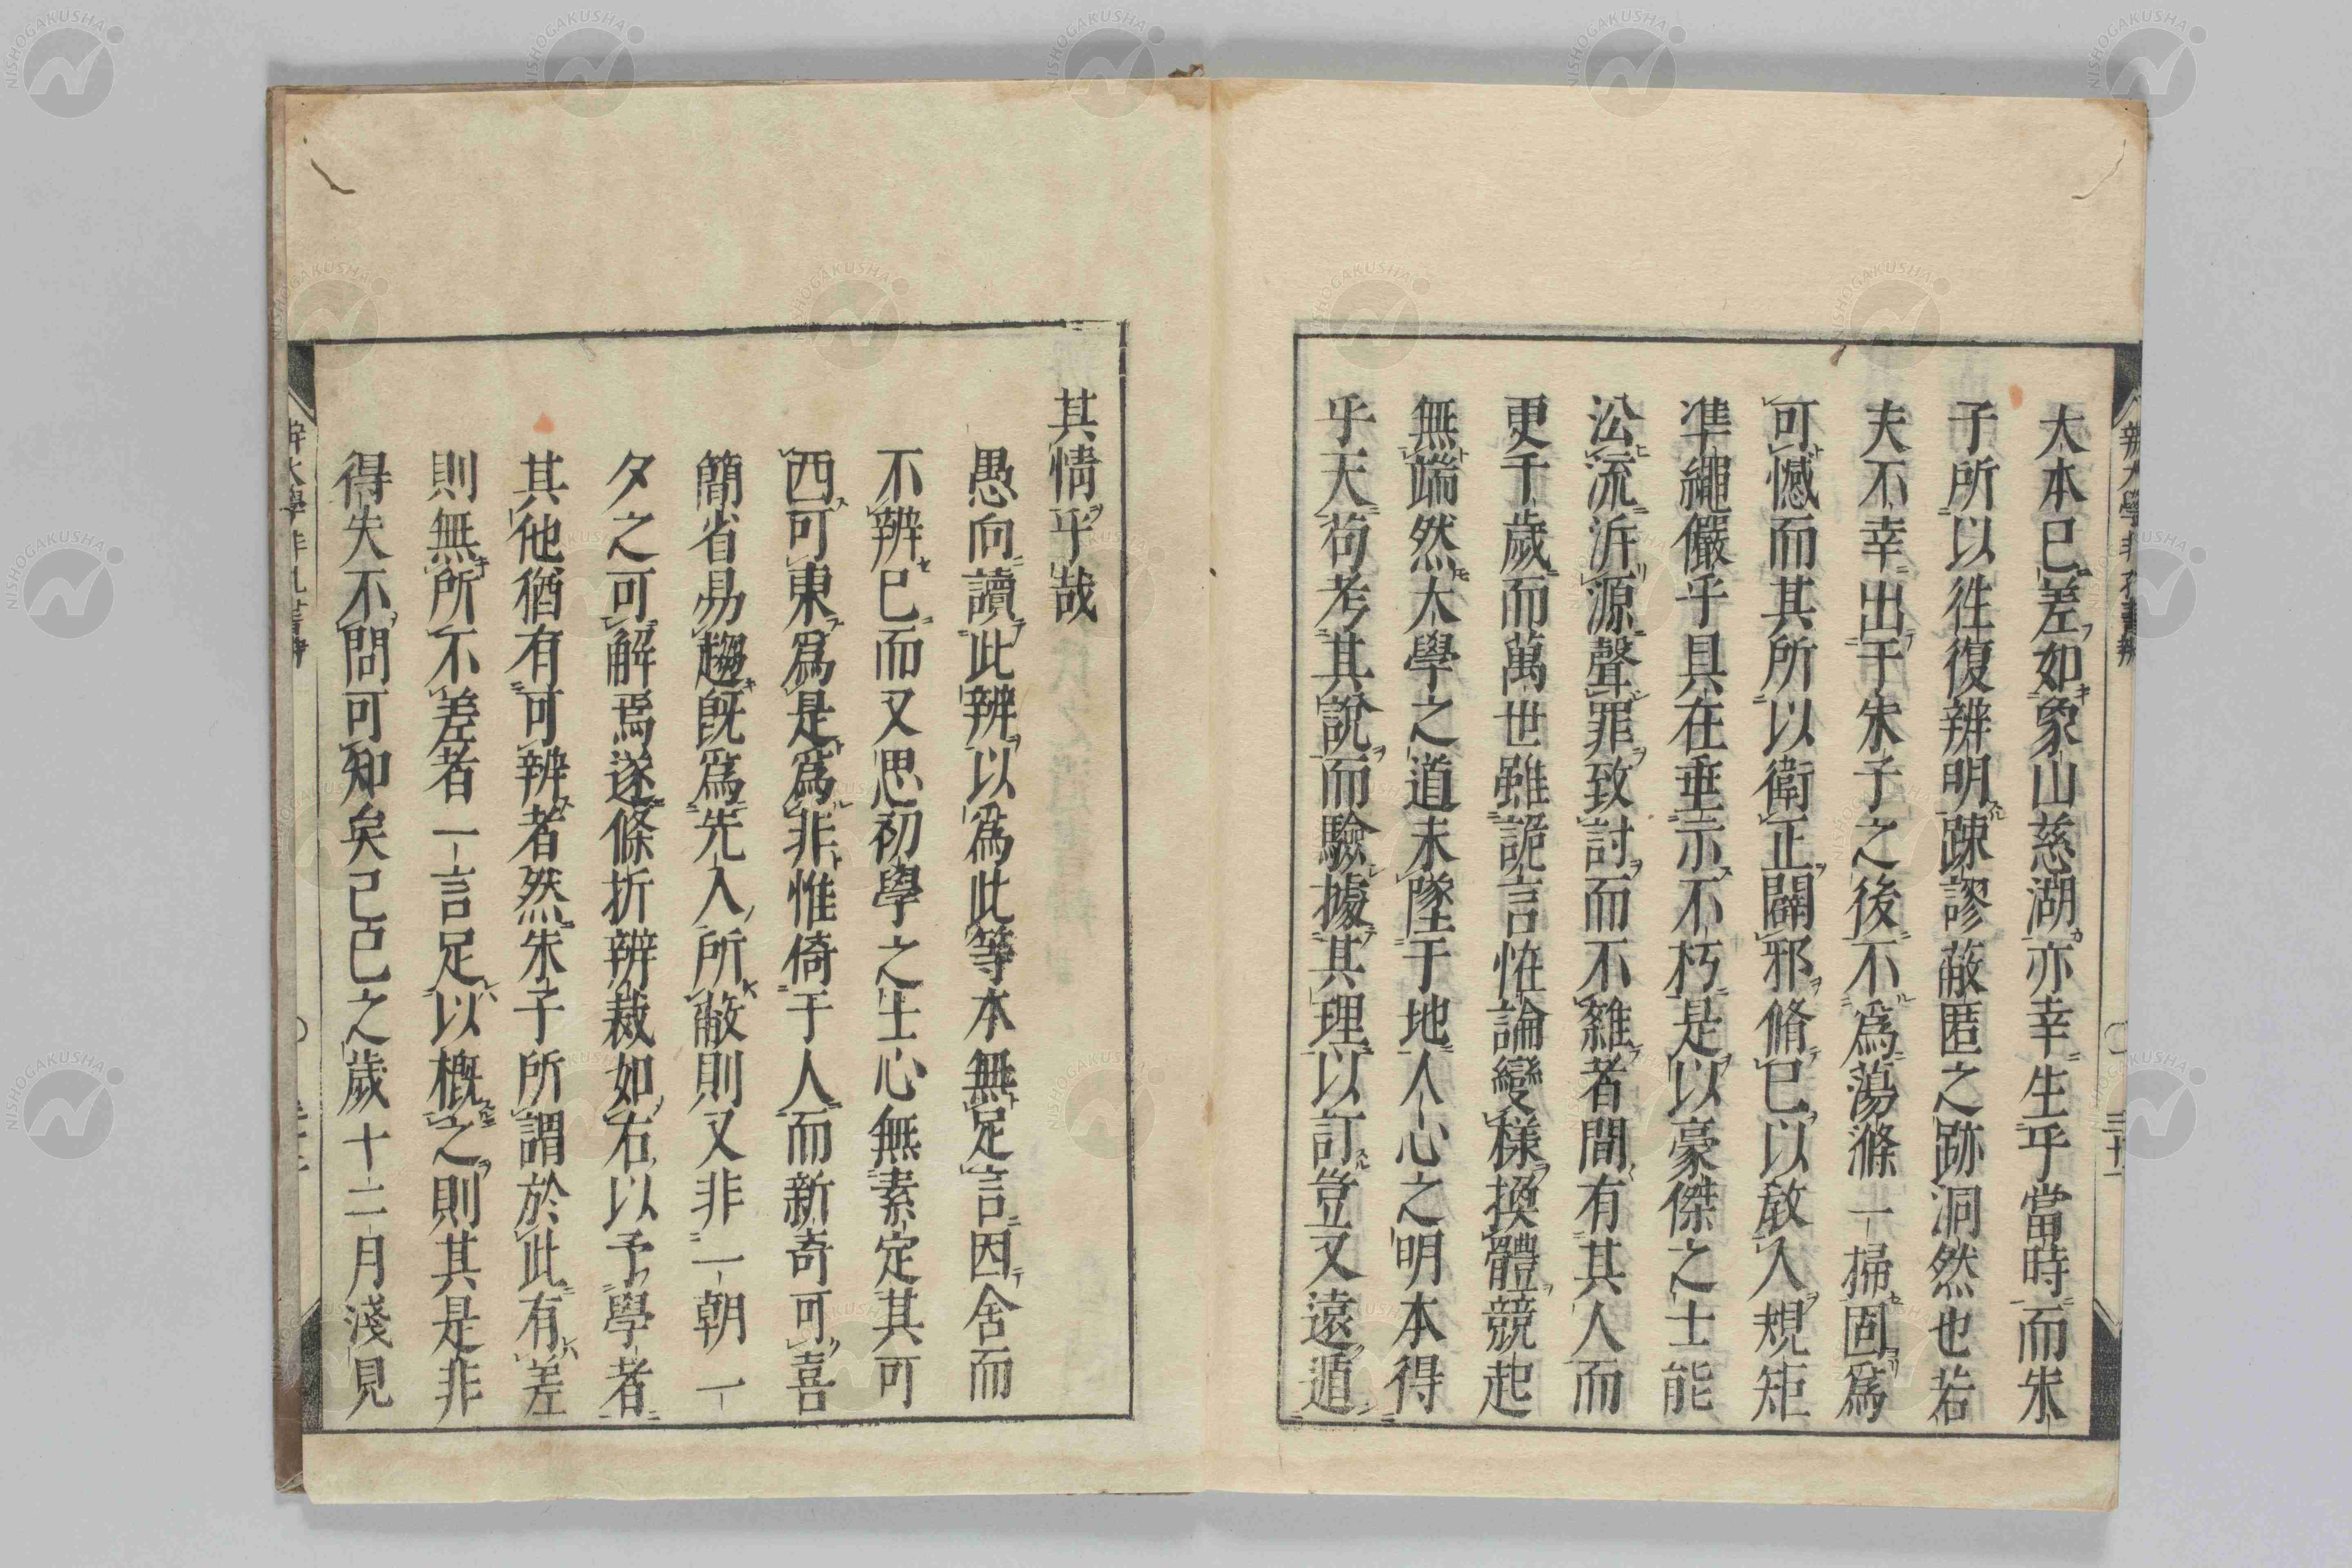 大本已差如象山慈湖亦幸生乎當時而朱
子所以往復辨明踈謬蔽匿之跡洞然也若
夫不幸出于朱子之後不爲蕩滌一掃固爲
可憾而其所以衛正闢邪脩已以啟入規矩
準繩儼乎具在垂示不朽是以豪傑之士能
㳂流泝源聲罪致討而不雜者間有其人而
更千歲而萬世雖詭言恠論變樣換體競起
無端然大學之道未墜于地人心之明本得
乎天苟考其説而驗據其理以訂豈又遠遁
其情乎哉
愚向讀此辨以爲此等本無足言因舍而
不辨已而又思初學之士心無素定其可
西可東爲是爲非惟倚于人而新奇可喜
簡省易趨既爲先入所蔽則又非一朝一
夕之可解焉遂條折辨裁如右以予學者
其他猶有可辨者然朱子所謂於此有差
則無所不差者一言足以概之則其是非
得失不問可知矣己巳之歲十二月淺見
辨大學非孔書辨
三十一
NISHOGAKUSHA